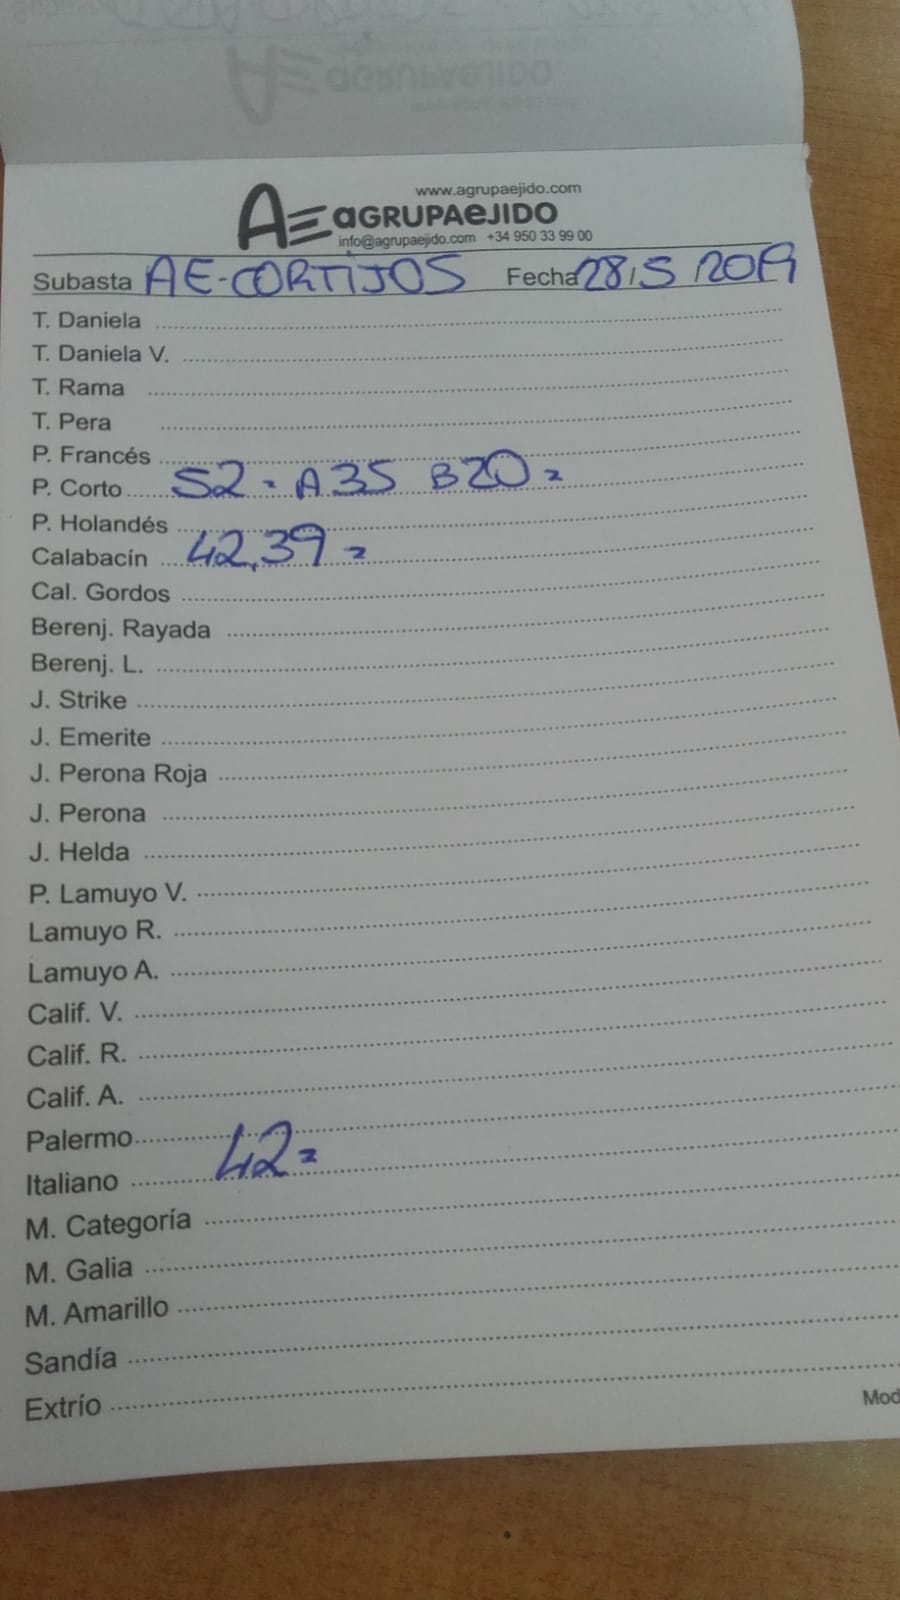 www.agrupaejido.com
AE aGRUPAeJIDO
info@agrupaejido.com +34 950 33 99 00
Subasta AE-CORTIJOS Fecha 28/5/2019
T. Daniela
T. Daniela V.
T. Rama
T. Pera
P. Francés
P. Corto 52 = A35 B20 =
P. Holandés
Calabacín 42,39 =
Cal. Gordos
Berenj. Rayada
Berenj. L.
J. Strike
J. Emerite
J. Perona Roja
J. Perona
J. Helda
P. Lamuyo V.
Lamuyo R.
Lamuyo A.
Calif. V.
Calif. R.
Calif. A.
Palermo
Italiano 42 =
M. Categoría
M. Galia
M. Amarillo
Sandía
Extrío
Mod